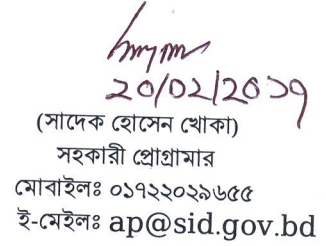 ২০/০২/২০১৭
(সাদেক হোসেন খোকা)
সহকারী প্রোগ্রামার
মোবাইলঃ ০১৭২২০২৯৬৫৫
ই-মেইলঃ ap@sid.gov.bd